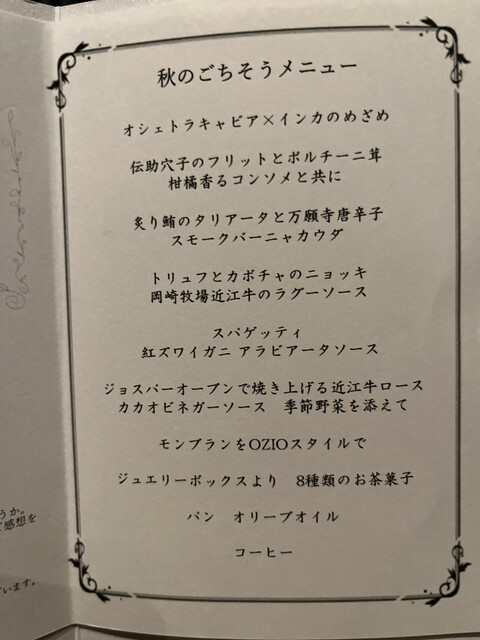 秋のごちそうメニュー
オシェトラキャビア×インカのめざめ
伝助穴子のフリットとポルチーニ茸
柑橘香るコンソメと共に
炙り鮪のタリアータと万願寺唐辛子
スモークバーニャカウダ
トリュフとカボチャのニョッキ
岡崎牧場近江牛のラグーソース
スパゲッティ
紅ズワイガニ アラビアータソース
ジョスパーオーブンで焼き上げる近江牛ロース
カカオビネガーソース　季節野菜を添えて
モンブランをOZIOスタイルで
ジュエリーボックスより　8種類のお茶菓子
パン　オリーブオイル
コーヒー
うか。
感想を
います。